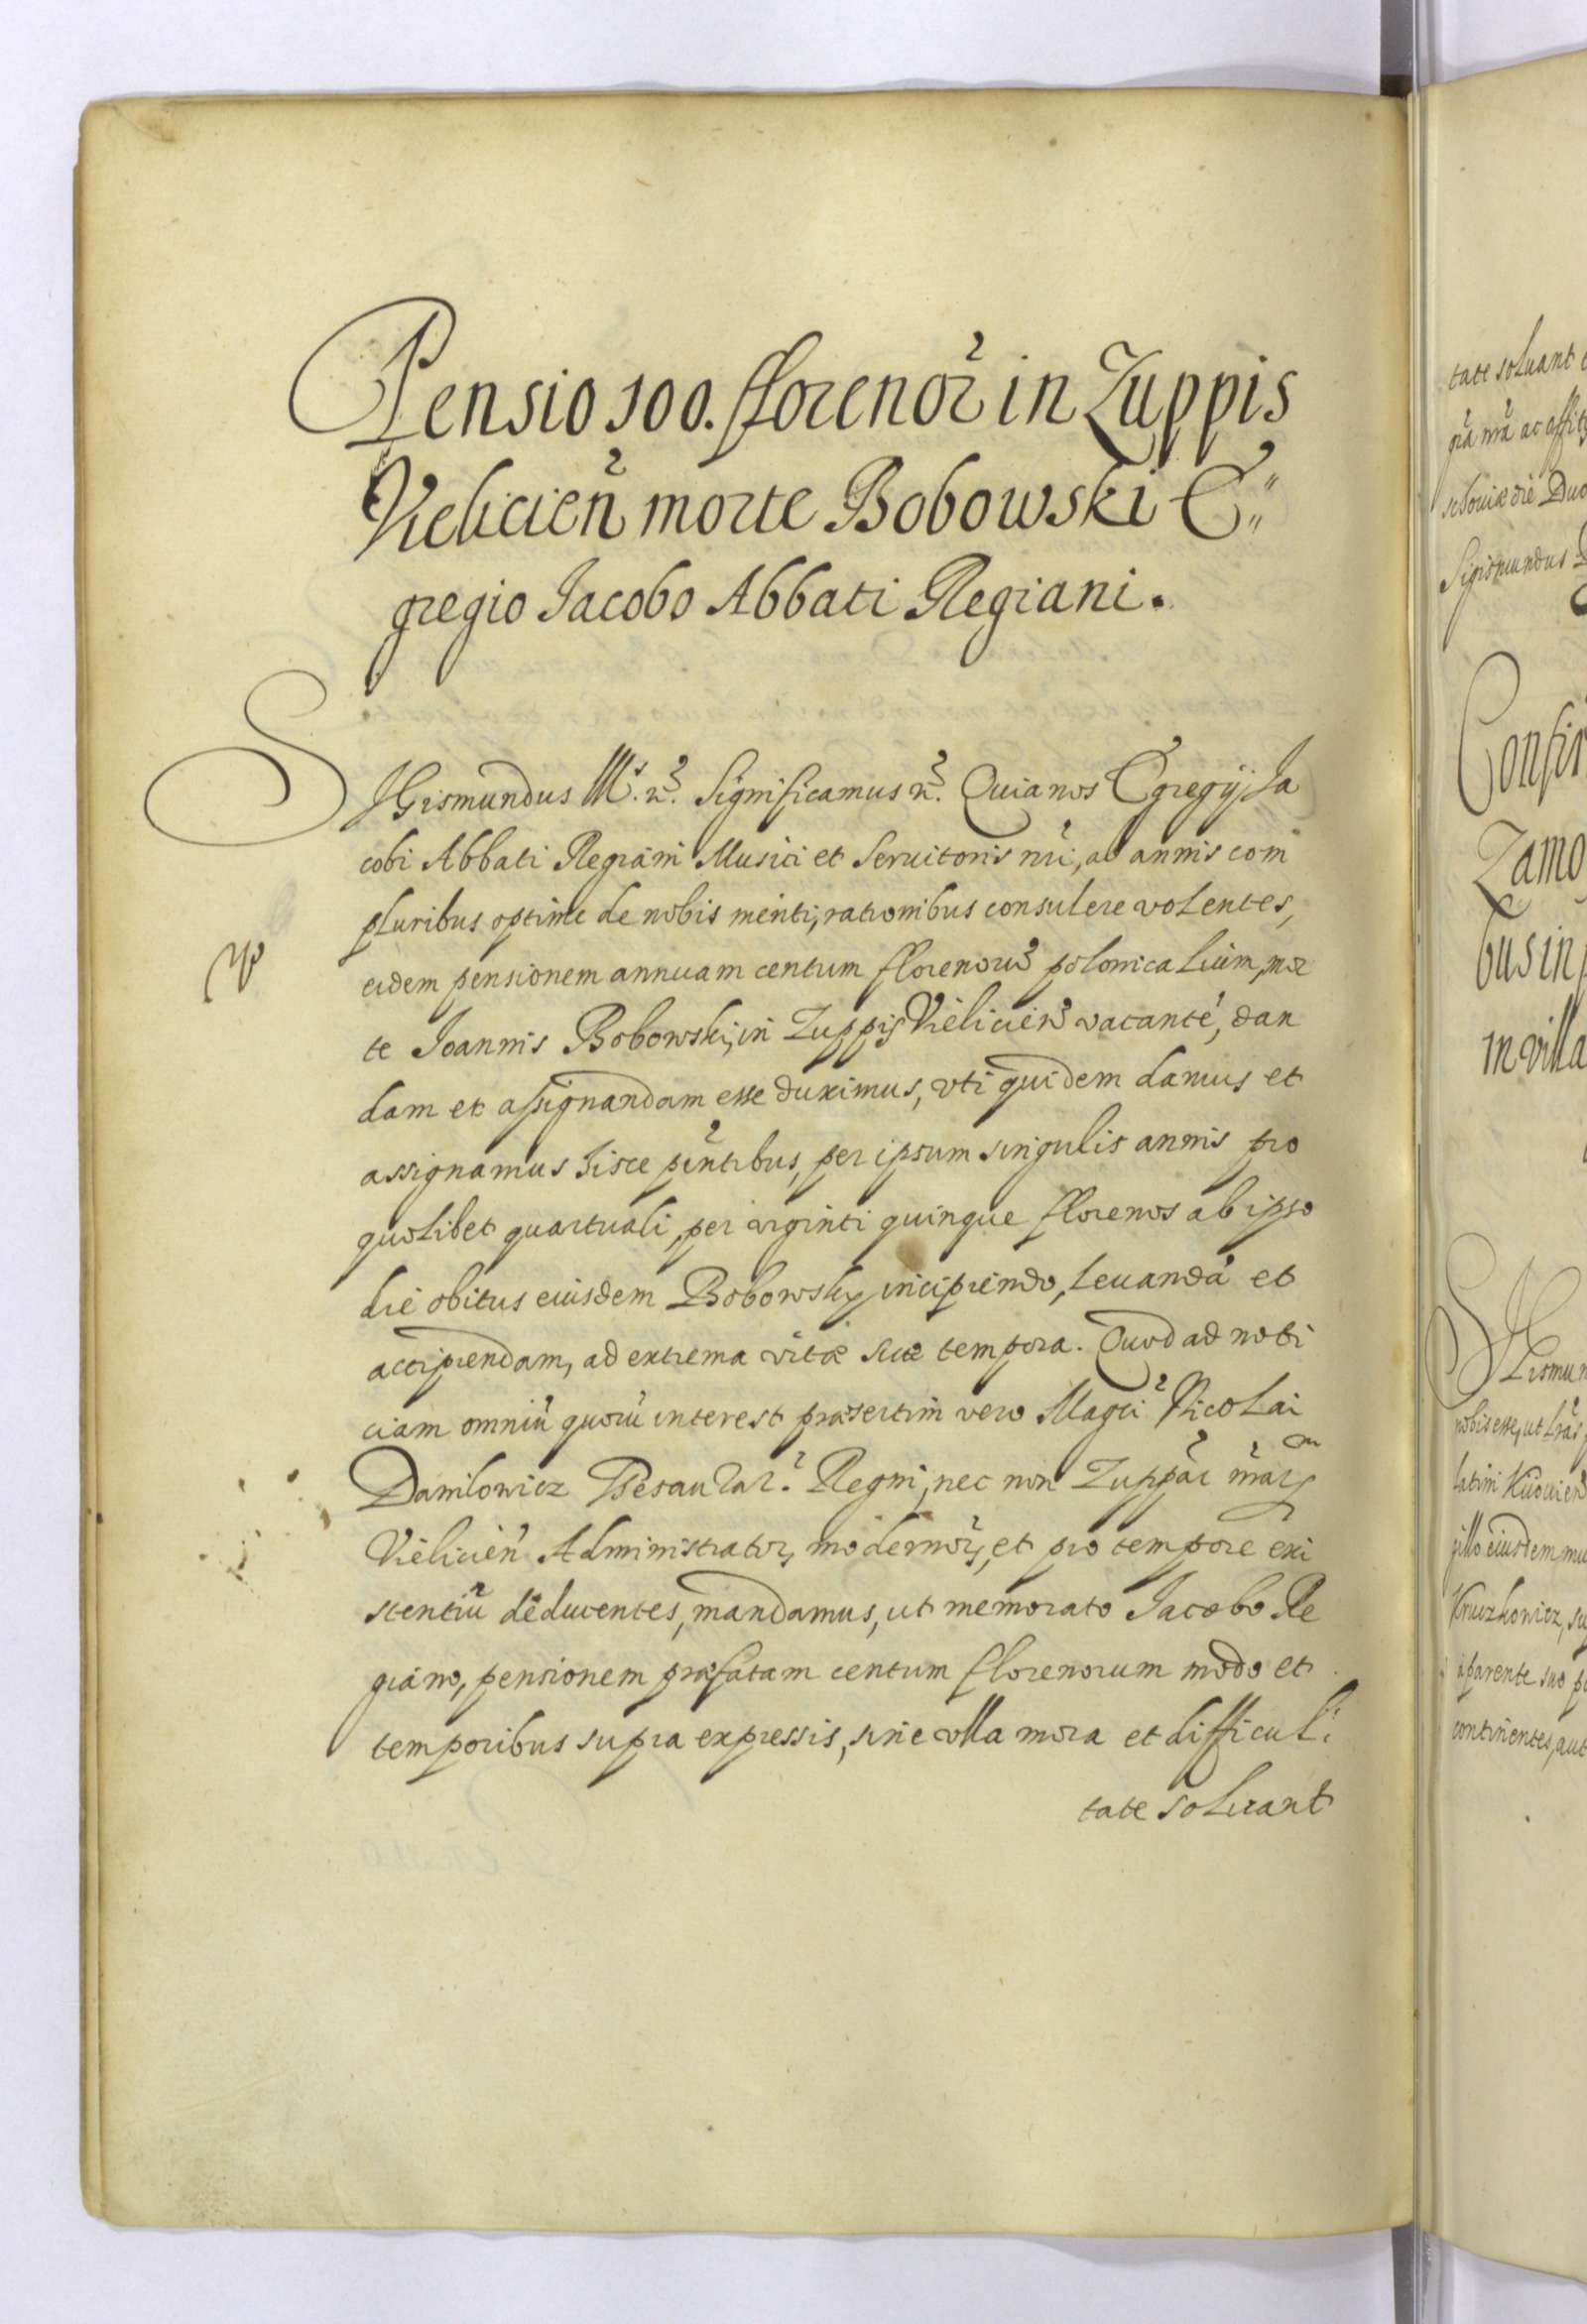 Pensio 100. florenor̃ in Zuppis
Vielicien̄ morte Bobowski E"
gregio Jacobo Abbati Regiani.
SIGismundus IIIs. etc. Significamus etc. Quia nos Egregij Ja
cobi Abbati Regiani Musici et Seruitoris nri, ab annis com
pluribus optime de nobis meriti, rationibus consulere volentes,
eidem pensionem annuam centum florenorũ polonicalium, mor
te Joannis Bobowski, in Zuppis Vielicien̄ vacante, dan
dam et assignandam esse duximus, vti quidem damus et
assignamus hisce pñtibus, per ipsum singulis annis pro
quolibet quartuali, per viginti quinque florenos ab ipso
die obitus eiusdem Bobowsky incipiendo, leuandã et
accipiendam, ad extrema vitæ suæ tempora. Quod ad noti
ciam omniũ quorũ interest præsertim vero Magci Nicolai
Danilowicz Thesaurar. Regni, nec non Zuppar̃ nrar̃
Vielicien̄ Administrator̃ modernor̃, et pro tempore exi
stentiũ deducentes, mandamus, ut memorato Jacobo Re
giano, pensionem præfatam centum florenorum modo et
temporibus supra expressis, sine vlla mora et difficul
tate soluant
tate soluant
grã nrã ac affit
Sigismundus
Confir
Zamo
bus in
in villa
SIGismun
nobis esse, ut Lrãs
latini Kiiovien̄
gillo eiusdem mu
Kruczkowicz, su
à parente suo p
continentes, aut